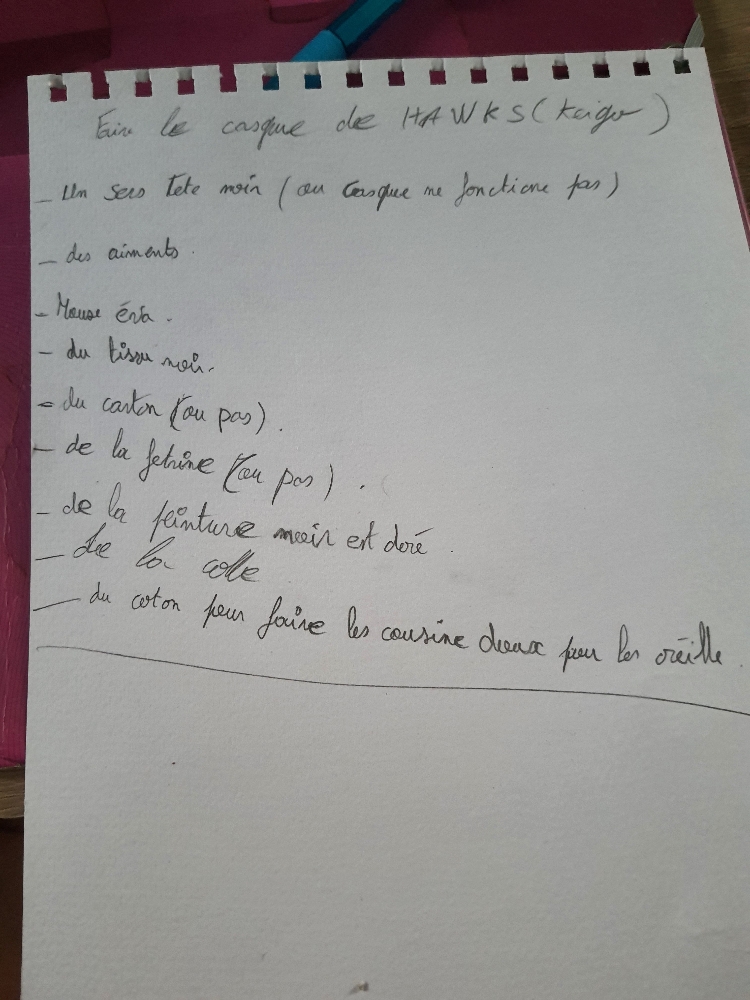 Faire le casque de HAWKS (Keigo)
- Un sers tete noir (ou Casque ne fonctione pas)
- des aiments.
- Mouse éva.
- du tissu noir.
- du carton (ou pas).
- de la fetrine (ou pas).
- de la peinture noir est doré.
- de la colle
- du coton pour faire les cousine doux pour les oreille.